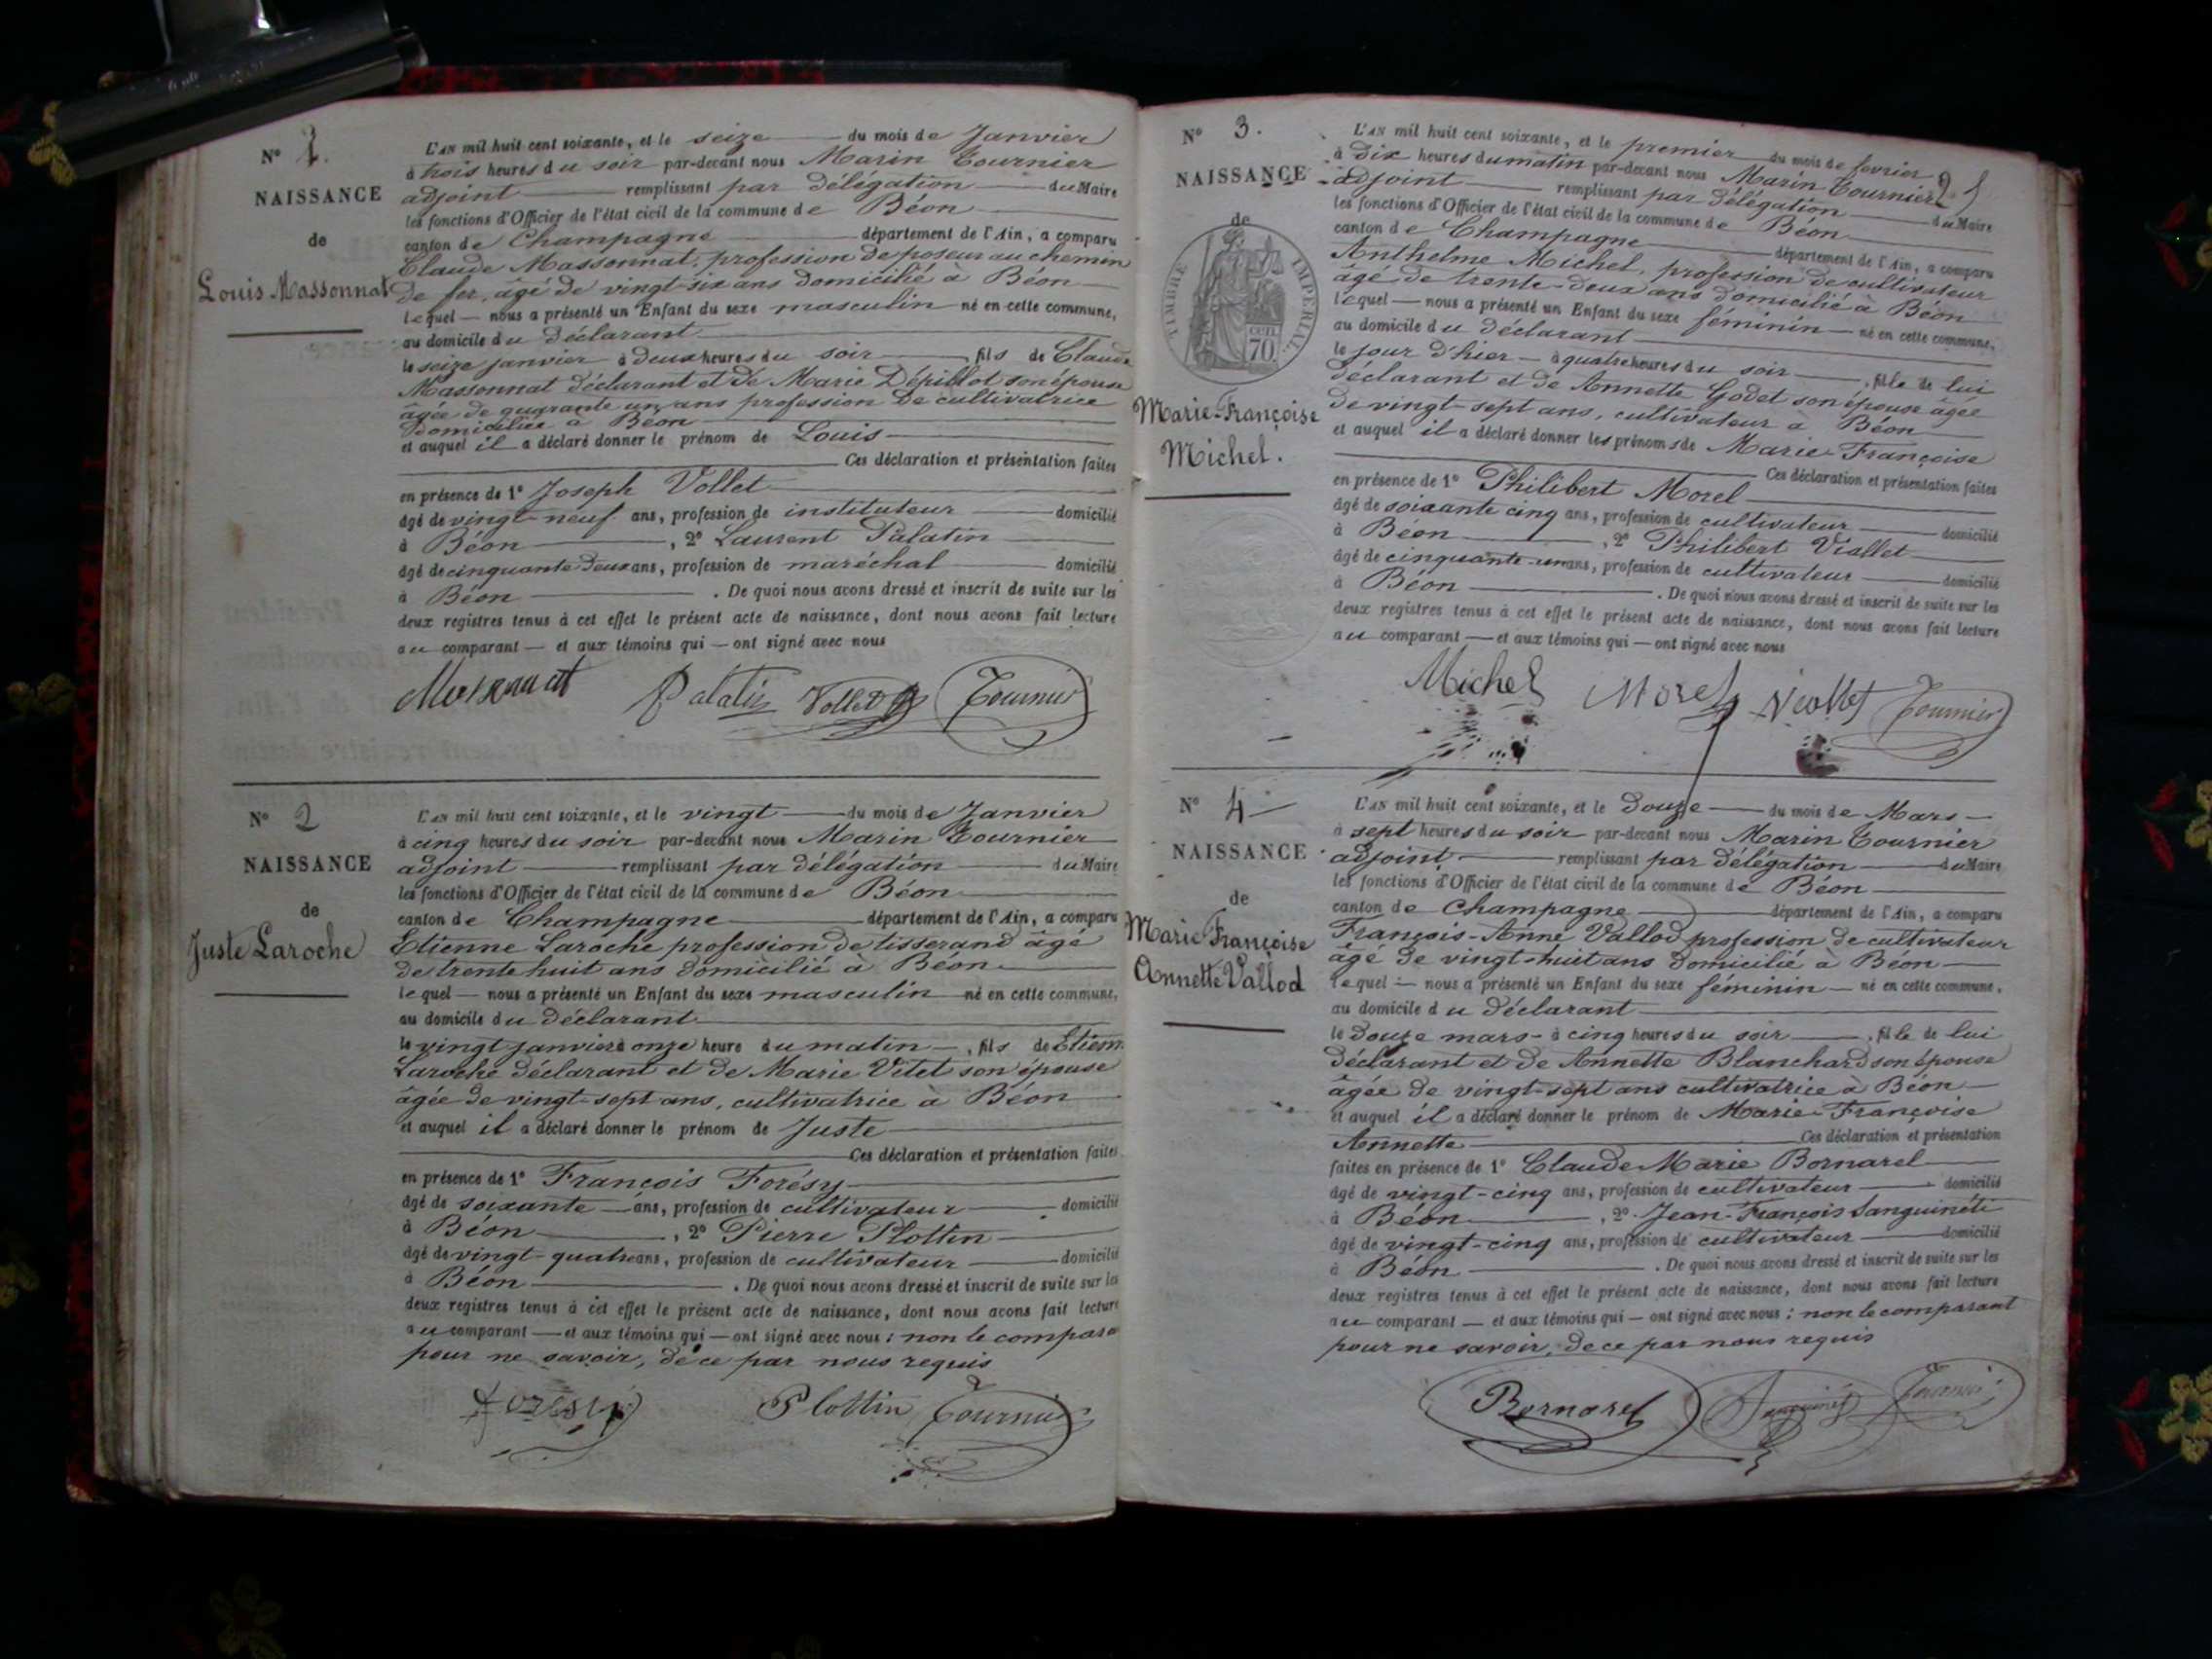 N° 1.
NAISSANCE
de
Louis Massonnat
L'AN mil huit cent soixante, et le seize du mois de Janvier
à trois heures du soir par-devant nous Marin Tournier
adjoint remplissant par délégation du Maire
les fonctions d'Officier de l'état civil de la commune de Béon
canton de Champagne département de l'Ain, a comparu
Claude Massonnat, profession de poseur au chemin
de fer, âgé de vingt-six ans domicilié à Béon
lequel — nous a présenté un Enfant du sexe masculin né en cette commune,
au domicile du déclarant
le seize janvier à deux heures du soir, fils de Claude
Massonnat déclarant et de Marie Dépillot son épouse
âgée de quarante un ans profession de cultivatrice
domiciliée à Béon
et auquel il a déclaré donner le prénom de Louis
Ces déclaration et présentation faites
en présence de 1° Joseph Vollet
âgé de vingt-neuf ans, profession de instituteur domicilié
à Béon, 2° Laurent Palatin
âgé de cinquante deux ans, profession de maréchal domicilié
à Béon. De quoi nous avons dressé et inscrit de suite sur les
deux registres tenus à cet effet le présent acte de naissance, dont nous avons fait lecture
au comparant — et aux témoins qui — ont signé avec nous
Massonnat Palatin Vollet Tournier
N° 2
NAISSANCE
de
Juste Laroche
L'AN mil huit cent soixante, et le vingt du mois de Janvier
à cinq heures du soir par-devant nous Marin Tournier
adjoint remplissant par délégation du Maire
les fonctions d'Officier de l'état civil de la commune de Béon
canton de Champagne département de l'Ain, a comparu
Etienne Laroche profession de tisserand âgé
de trente huit ans domicilié à Béon
lequel — nous a présenté un Enfant du sexe masculin né en cette commune,
au domicile du déclarant
le vingt janvier à onze heure du matin, fils de Etienn
Laroche déclarant et de Marie Vitet son épouse
âgée de vingt-sept ans, cultivatrice à Béon
et auquel il a déclaré donner le prénom de Juste
Ces déclaration et présentation faites
en présence de 1° François Forésy
âgé de soixante ans, profession de cultivateur domicilié
à Béon, 2° Pierre Plottin
âgé de vingt-quatre ans, profession de cultivateur domicilié
à Béon. De quoi nous avons dressé et inscrit de suite sur les
deux registres tenus à cet effet le présent acte de naissance, dont nous avons fait lecture
au comparant — et aux témoins qui — ont signé avec nous : non le compara
pour ne savoir, de ce par nous requis
Foresy Plottin Tournier
N° 3.
NAISSANCE
de
TIMBRE IMPERIAL
CEN.
70
Marie-Françoise
Michel.
L'AN mil huit cent soixante, et le premier du mois de fevrier
à dix heures du matin par-devant nous Marin Tournier
adjoint remplissant par délégation du Maire
les fonctions d'Officier de l'état civil de la commune de Béon
canton de Champagne département de l'Ain, a comparu
Anthelme Michel, profession de cultivateur
âgé de trente-deux ans domicilié à Béon
lequel — nous a présenté un Enfant du sexe féminin — né en cette commune,
au domicile du déclarant
le jour d'hier — à quatre heures du soir, fille de lui
déclarant et de Annette Godet son épouse âgée
de vingt-sept ans, cultivateur à Béon
et auquel il a déclaré donner les prénoms de Marie-Françoise
Ces déclaration et présentation faites
en présence de 1° Philibert Morel
âgé de soixante cinq ans, profession de cultivateur domicilié
à Béon, 2° Philibert Viallet
âgé de cinquante-un ans, profession de cultivateur domicilié
à Béon. De quoi nous avons dressé et inscrit de suite sur les
deux registres tenus à cet effet le présent acte de naissance, dont nous avons fait lecture
au comparant — et aux témoins qui — ont signé avec nous
Michel Morel Viollet Tournier
N° 4
NAISSANCE
de
Marie Françoise
Annette Vallod
L'AN mil huit cent soixante, et le douze du mois de Mars
à sept heures du soir par-devant nous Marin Tournier
adjoint remplissant par délégation du Maire
les fonctions d'Officier de l'état civil de la commune de Béon
canton de Champagne département de l'Ain, a comparu
François-Anne Vallod profession de cultivateur
âgé de vingt-huit ans domicilié à Béon
lequel — nous a présenté un Enfant du sexe féminin — né en cette commune,
au domicile du déclarant
le douze mars à cinq heures du soir, fille de lui
déclarant et de Annette Blanchard son épouse
âgée de vingt-sept ans cultivatrice à Béon
et auquel il a déclaré donner le prénom de Marie-Françoise
Annette Ces déclaration et présentation
faites en présence de 1° Claude Marie Bornarel
âgé de vingt-cinq ans, profession de cultivateur domicilié
à Béon, 2° Jean-François Sanguinéti
âgé de vingt-cinq ans, profession de cultivateur domicilié
à Béon. De quoi nous avons dressé et inscrit de suite sur les
deux registres tenus à cet effet le présent acte de naissance, dont nous avons fait lecture
au comparant — et aux témoins qui — ont signé avec nous : non le comparant
pour ne savoir, de ce par nous requis
Bornarel Sanguineti Tournier